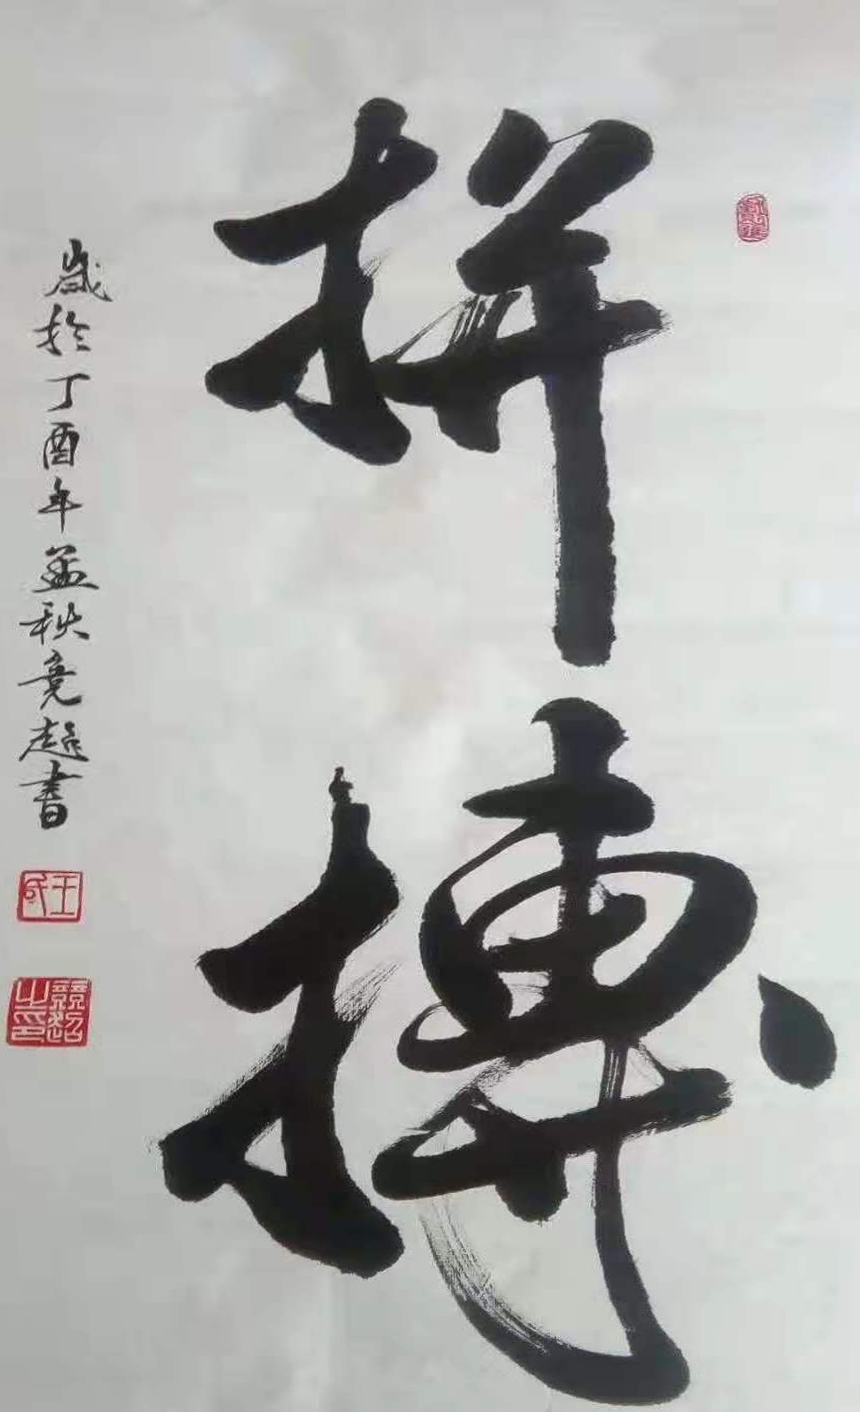 拼搏
歲於丁酉年孟秋竟超書